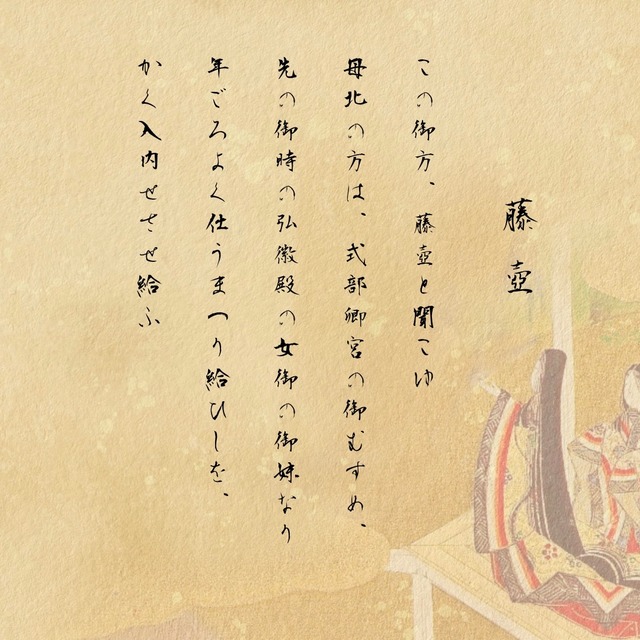 藤壺
この御方、藤壺と聞こゆ
母北の方は、式部卿宮の御むすめ、
先の御時の弘徽殿の女御の御妹なり
年ごろよく仕うまつり給ひしを、
かく入内せさせ給ふ